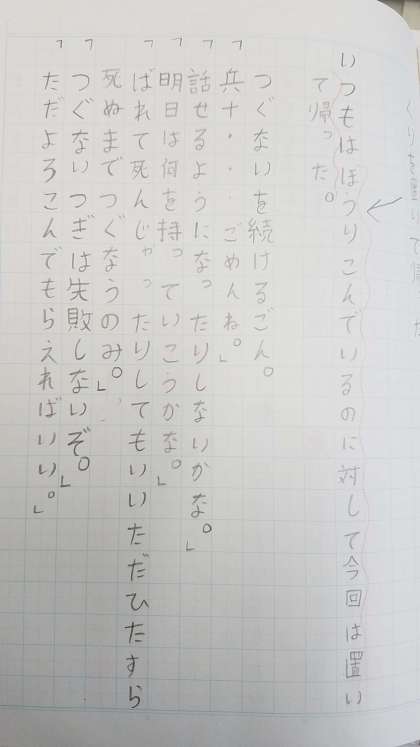 いつもはほうりこんでいるのに対して今回は置い
て帰った。
つぐないを続けるごん。
「兵十・・・ごめんね。」
「話せるようになったりしないかな。」
「明日は何を持っていこうかな。」
「ばれて死んじゃったりしてもいいただひたすら
死ぬまでつぐなうのみ。」
「つぐないつぎは失敗しないぞ。」
「ただよろこんでもらえればいい。」